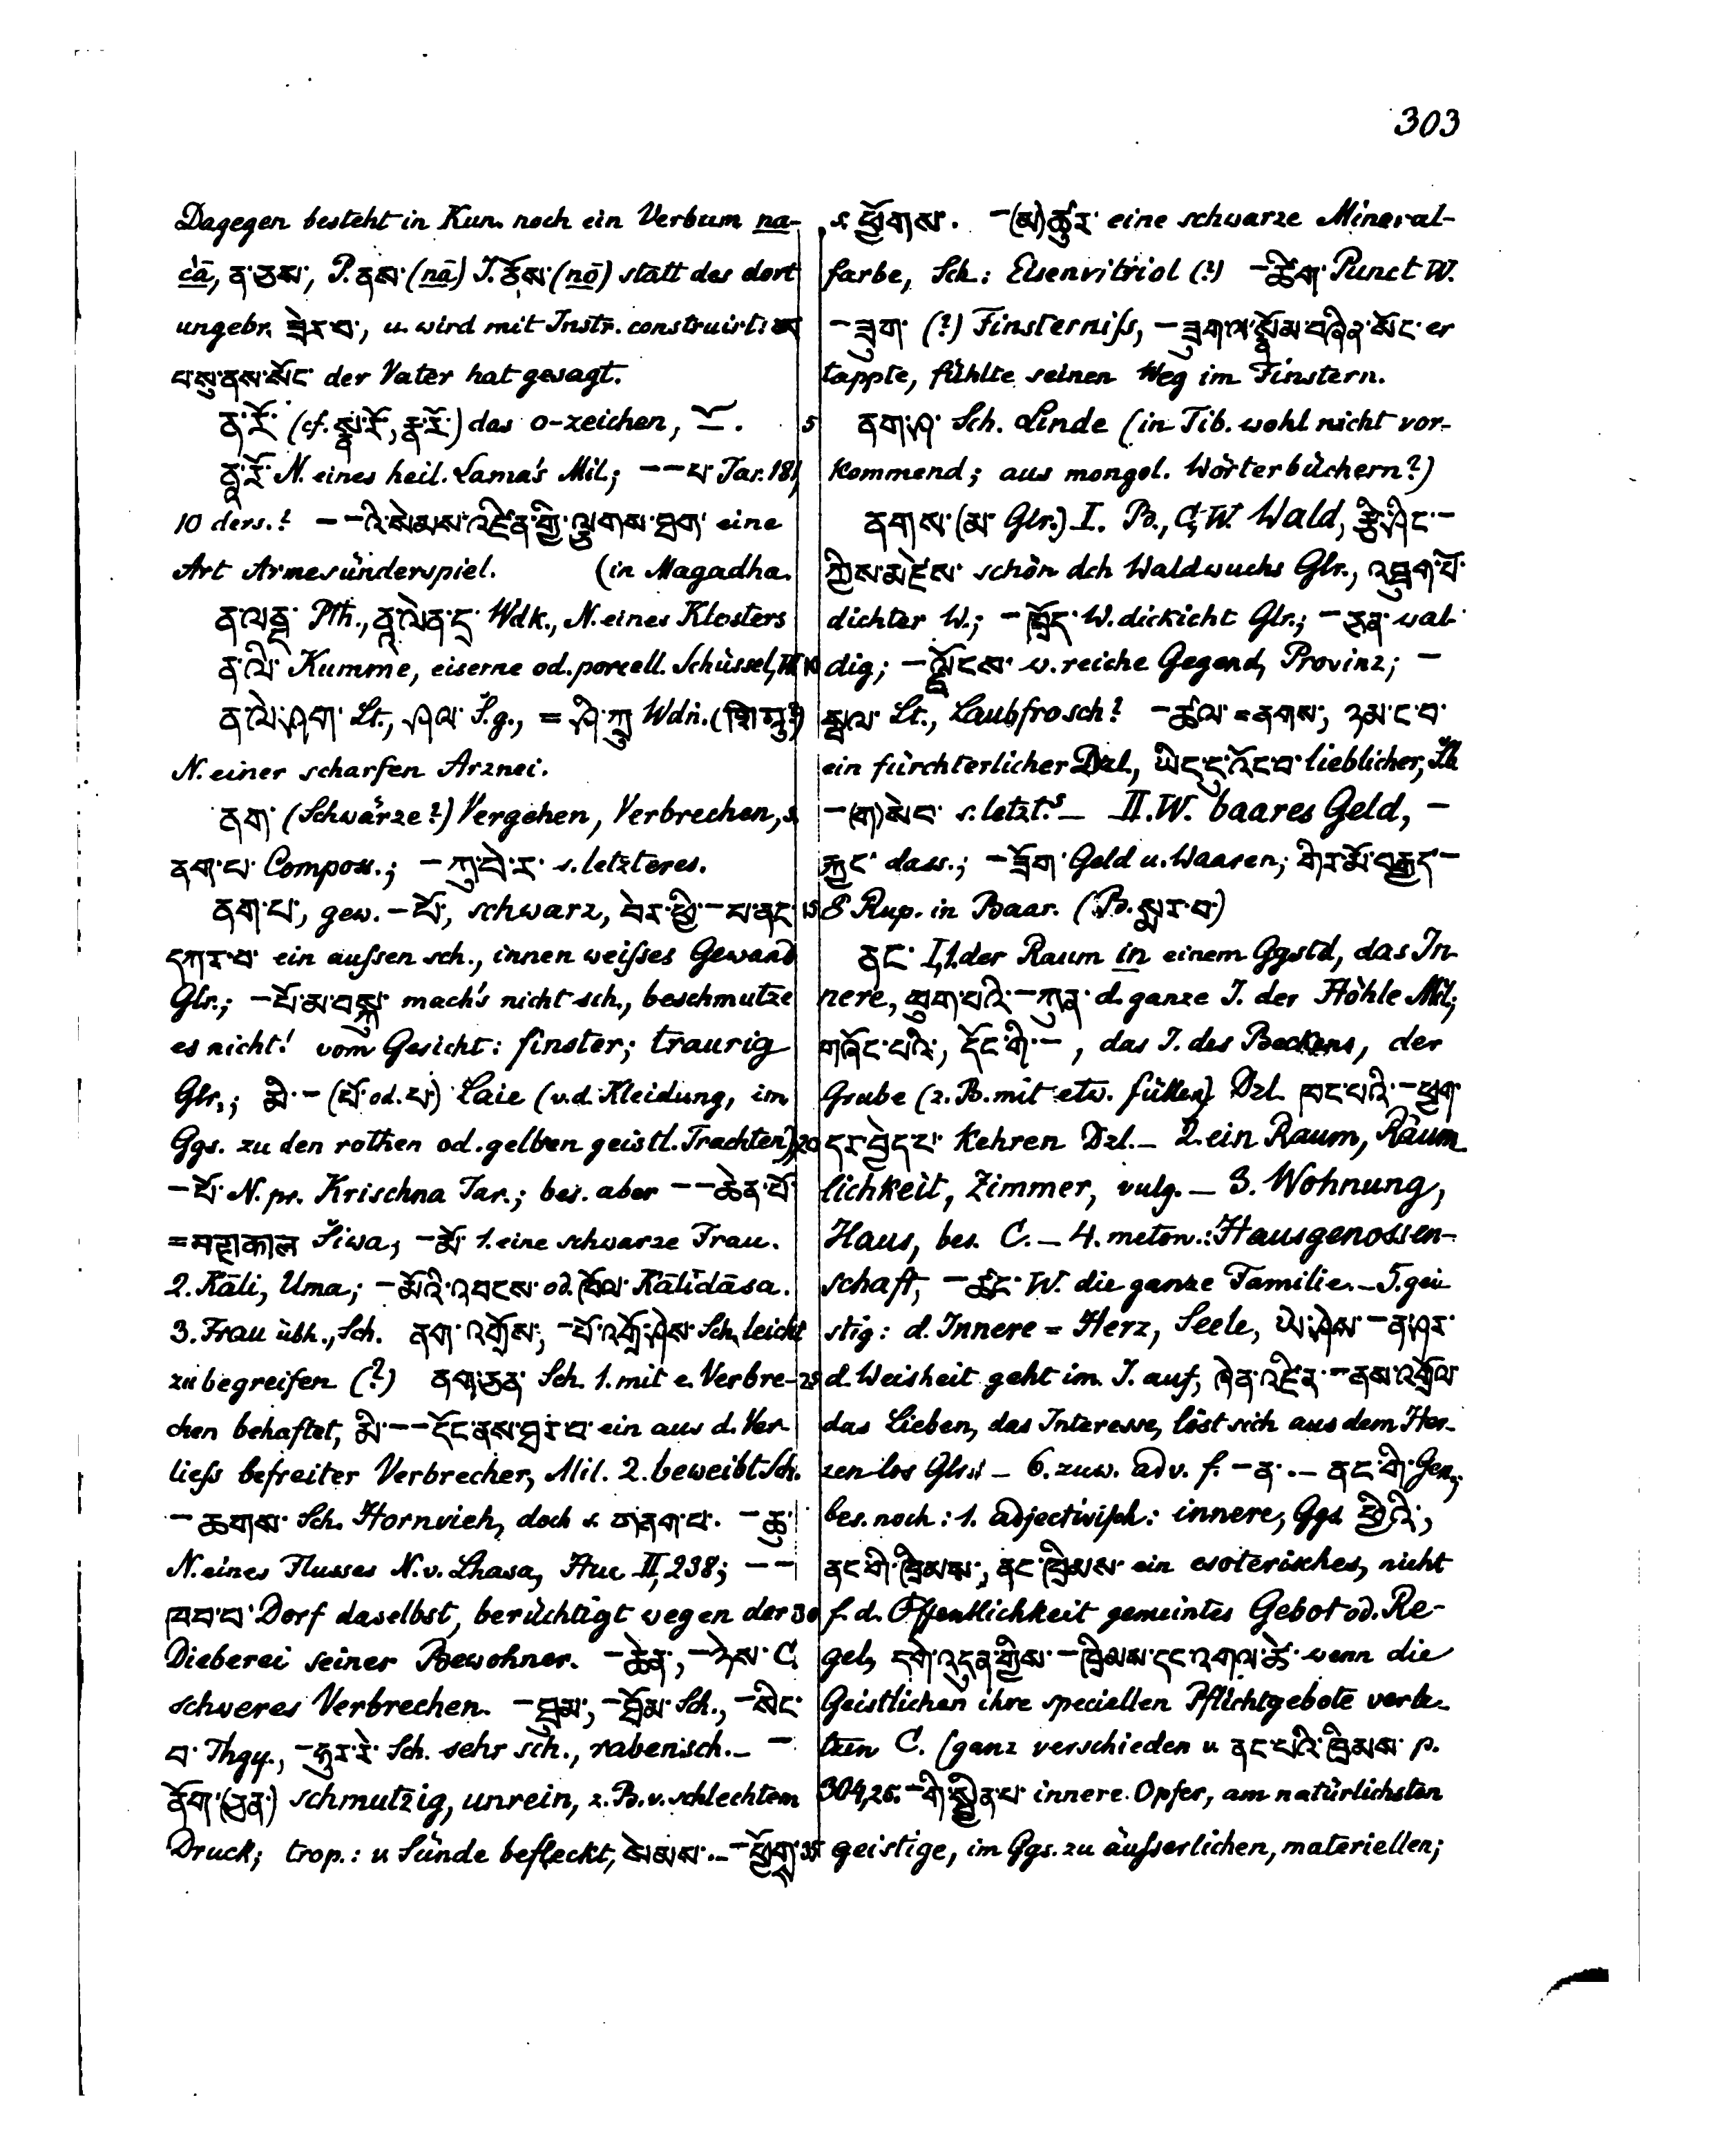 303
Dagegen besteht in Kun. noch ein Verbum na-
cā, ན་ཅས་, P. ནས་ (nā) I. ནོས་ (nō) statt des dort
ungebr. ཟེར་བ་, u. wird mit Instr. construirt:
པ་སུ་ནས་སོང་ der Vater hat gesagt.
ན་རོ་ (cf. སྣ་རོ་, རྣ་རོ་) das o-zeichen, ཽ.
ནཱ་རོ་ N. eines heil. Lama's Mil.; – – པ་ Tar. 181,
10 ders.? – – འི་སེམས་འཛིན་གྱི་ལྕགས་ཐག་ eine
Art Armesünderspiel. (in Magadha.
ན་ལནྡ་ Pth., ནཱ་ལེན་དྲ་ Wdk., N. eines Klosters
ན་ལི་ Kumme, eiserne od. porcell. Schüssel,
ན་ལེ་ཤག་ Lt., ཤལ་ S.g., = ཤི་ཀྲུ་ Wdn.
N. einer scharfen Arznei.
ནག་ (Schwärze?) Vergehen, Verbrechen, s.
ནག་པ་ Compos.; – ཀུ་བེ་ར་ s. letzteres.
ནག་པ་, gew. – པོ་, schwarz, བེར་ཕྱི་ – པ་ནང་
དཀར་བ་ ein aussen sch., innen weisses Gewand
Glr.; – པོ་མ་བསྐུ་ mach's nicht sch., beschmutze
es nicht! vom Gesicht: finster; traurig
Glr.; མི་ – (པོ་ od. པ་) Laie (v.d. Kleidung, im
Ggs. zu den rothen od. gelben geistl. Trachten),
– པོ་ N. pr. Krischna Tar.; bes. aber – – ཆེན་པོ་
= महाकाल Siwa; – མོ་ 1. eine schwarze Frau.
2. Kāli, Uma; – མོའི་འབངས་ od. ཁོལ་ Kālidāsa.
3. Frau übh., Sch. ནག་འགྲོས་, – པོ་འགྲོ་ཤེས་ Sch. leicht
zu begreifen (?) ནག་ཅན་ Sch. 1. mit e. Verbre-
chen behaftet, མི་ – – དོང་ནས་ཐར་པ་ ein aus d. Ver-
liess befreiter Verbrecher, Mil. 2. beweibt Sch.
– ཆགས་ Sch. Hornvieh, doch s. གནག་པ་. – ཆུ་
N. eines Flusses N. v. Lhasa, Huc II, 238; – –
ཁ་བ་ Dorf daselbst, berüchtigt wegen der
Dieberei seiner Bewohner. – ཆེན་, – ཉེས་ C.
schweres Verbrechen. – ཐུམ་, – ཐོམ་ Sch., – སིང་
བ་ Thgy., – ཧུར་རེ་ Sch. sehr sch., rabensch. – –
ནོག་ (ཅན་) schmutzig, unrein, z. B. v. schlechtem
Druck; trop.: v. Sünde befleckt, སེམས་. – – ཕྱོགས་
s. ཕྱོགས་. – (མ)ཚུར་ eine schwarze Mineral-
farbe, Sch.: Eisenvitriol (?) – ཚེག་ Punct W.
– ཟུག་ (?) Finsterniss, – ཟུག་ལ་སྙོམ་བཞིན་སོང་ er
tappte, fühlte seinen Weg im Finstern.
ནག་ཤ་ Sch. Linde (in Tib. wohl nicht vor-
kommend; aus mongol. Wörterbüchern?)
ནགས་ (མ་ Glr.) I. B., C., W. Wald, རྩི་ཤིང་ –
ཀྱིས་མཛེས་ schön dch Waldwuchs Glr., འཐུག་པོ་
dichter W.; – ཁྲོད་ W. dickicht Glr.; – ཅན་ wal-
dig; – ལྗོངས་ w. reiche Gegend, Provinz; –
སྦལ་ Lt., Laubfrosch? – ཚལ་ = ནགས་, ཉམ་ང་བ་
ein fürchterlicher Dzl., ཡིད་དུ་འོང་བ་ lieblicher,
– (ག)སེབ་ s. letzt.s – II. W. baares Geld, –
རྐྱང་ dass.; – ཟོག་ Geld u. Waaren; གིར་མོ་བརྒྱད་ –
8 Rup. in Baar. (B. སྨར་བ་)
ནང་ I, 1. der Raum in einem Ggstd, das In-
nere, ཕུག་པའི་ – ཀུན་ d. ganze I. der Höhle Mil.;
གཞོང་པའི་, དོང་གི་ –, das I. des Beckens, der
Grube (z. B. mit etw. füllen) Dzl. ཁང་པའི་ – ཕྱག་
དར་བྱེད་པ་ kehren Dzl. – 2. ein Raum, Räum-
lichkeit, Zimmer, vulg. – 3. Wohnung,
Haus, bes. C. – 4. meton.: Hausgenossen-
schaft, – ཚང་ W. die ganze Familie. – 5. gei-
stig: d. Innere = Herz, Seele, ཡེ་ཤེས་ – ན་ཤར་
d. Weisheit geht im I. auf, ཞེན་འཛིན་ – ནས་འགྲོལ་
das Lieben, das Interesse, löst sich aus dem Her-
zen los Glr. – 6. zuw. adv. f. – ན་. – ནང་གི་ Gen.,
bes. noch: 1. adjectivisch: innere, Ggs. ཕྱིའི་,
ནང་གི་ཁྲིམས་, ནང་ཁྲིམས་ ein esoterisches, nicht
f. d. Öffentlichkeit gemeintes Gebot od. Re-
gel, དགེ་འདུན་གྱིས་ – ཁྲིམས་དང་འགལ་ཚེ་ wenn die
Geistlichen ihre speciellen Pflichtgebote verle-
tzen C. (ganz verschieden v. ནང་པའི་ཁྲིམས་ p.
304, 26. – གི་སྦྱིན་པ་ innere Opfer, am natürlichsten
geistige, im Ggs. zu äusserlichen, materiellen;